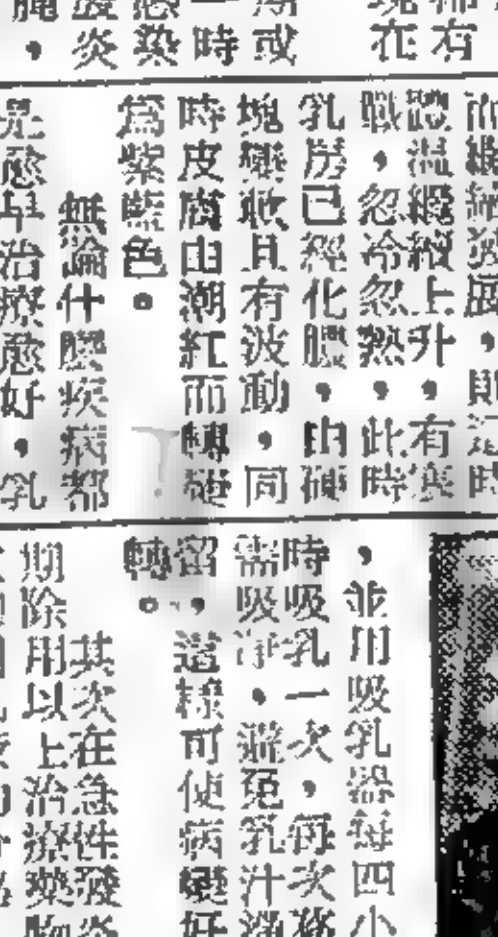 現在
稀有
塊或
一時
感染
炎
，
而繼續發展，則這時
體溫繼續上升，有寒
戰，忽冷忽熱，此時
乳房已經化膿，由硬
塊變軟且有波動，同
時皮膚由潮紅而轉變
為紫藍色。
無論什麼疾病都
是愈早治療愈好，乳
，並用吸乳器每四小
時吸乳一次，每次務
需吸淨，避免乳汁滯
留，這樣可使病變好
轉。
其次在急性發炎
期除用以上治療藥物